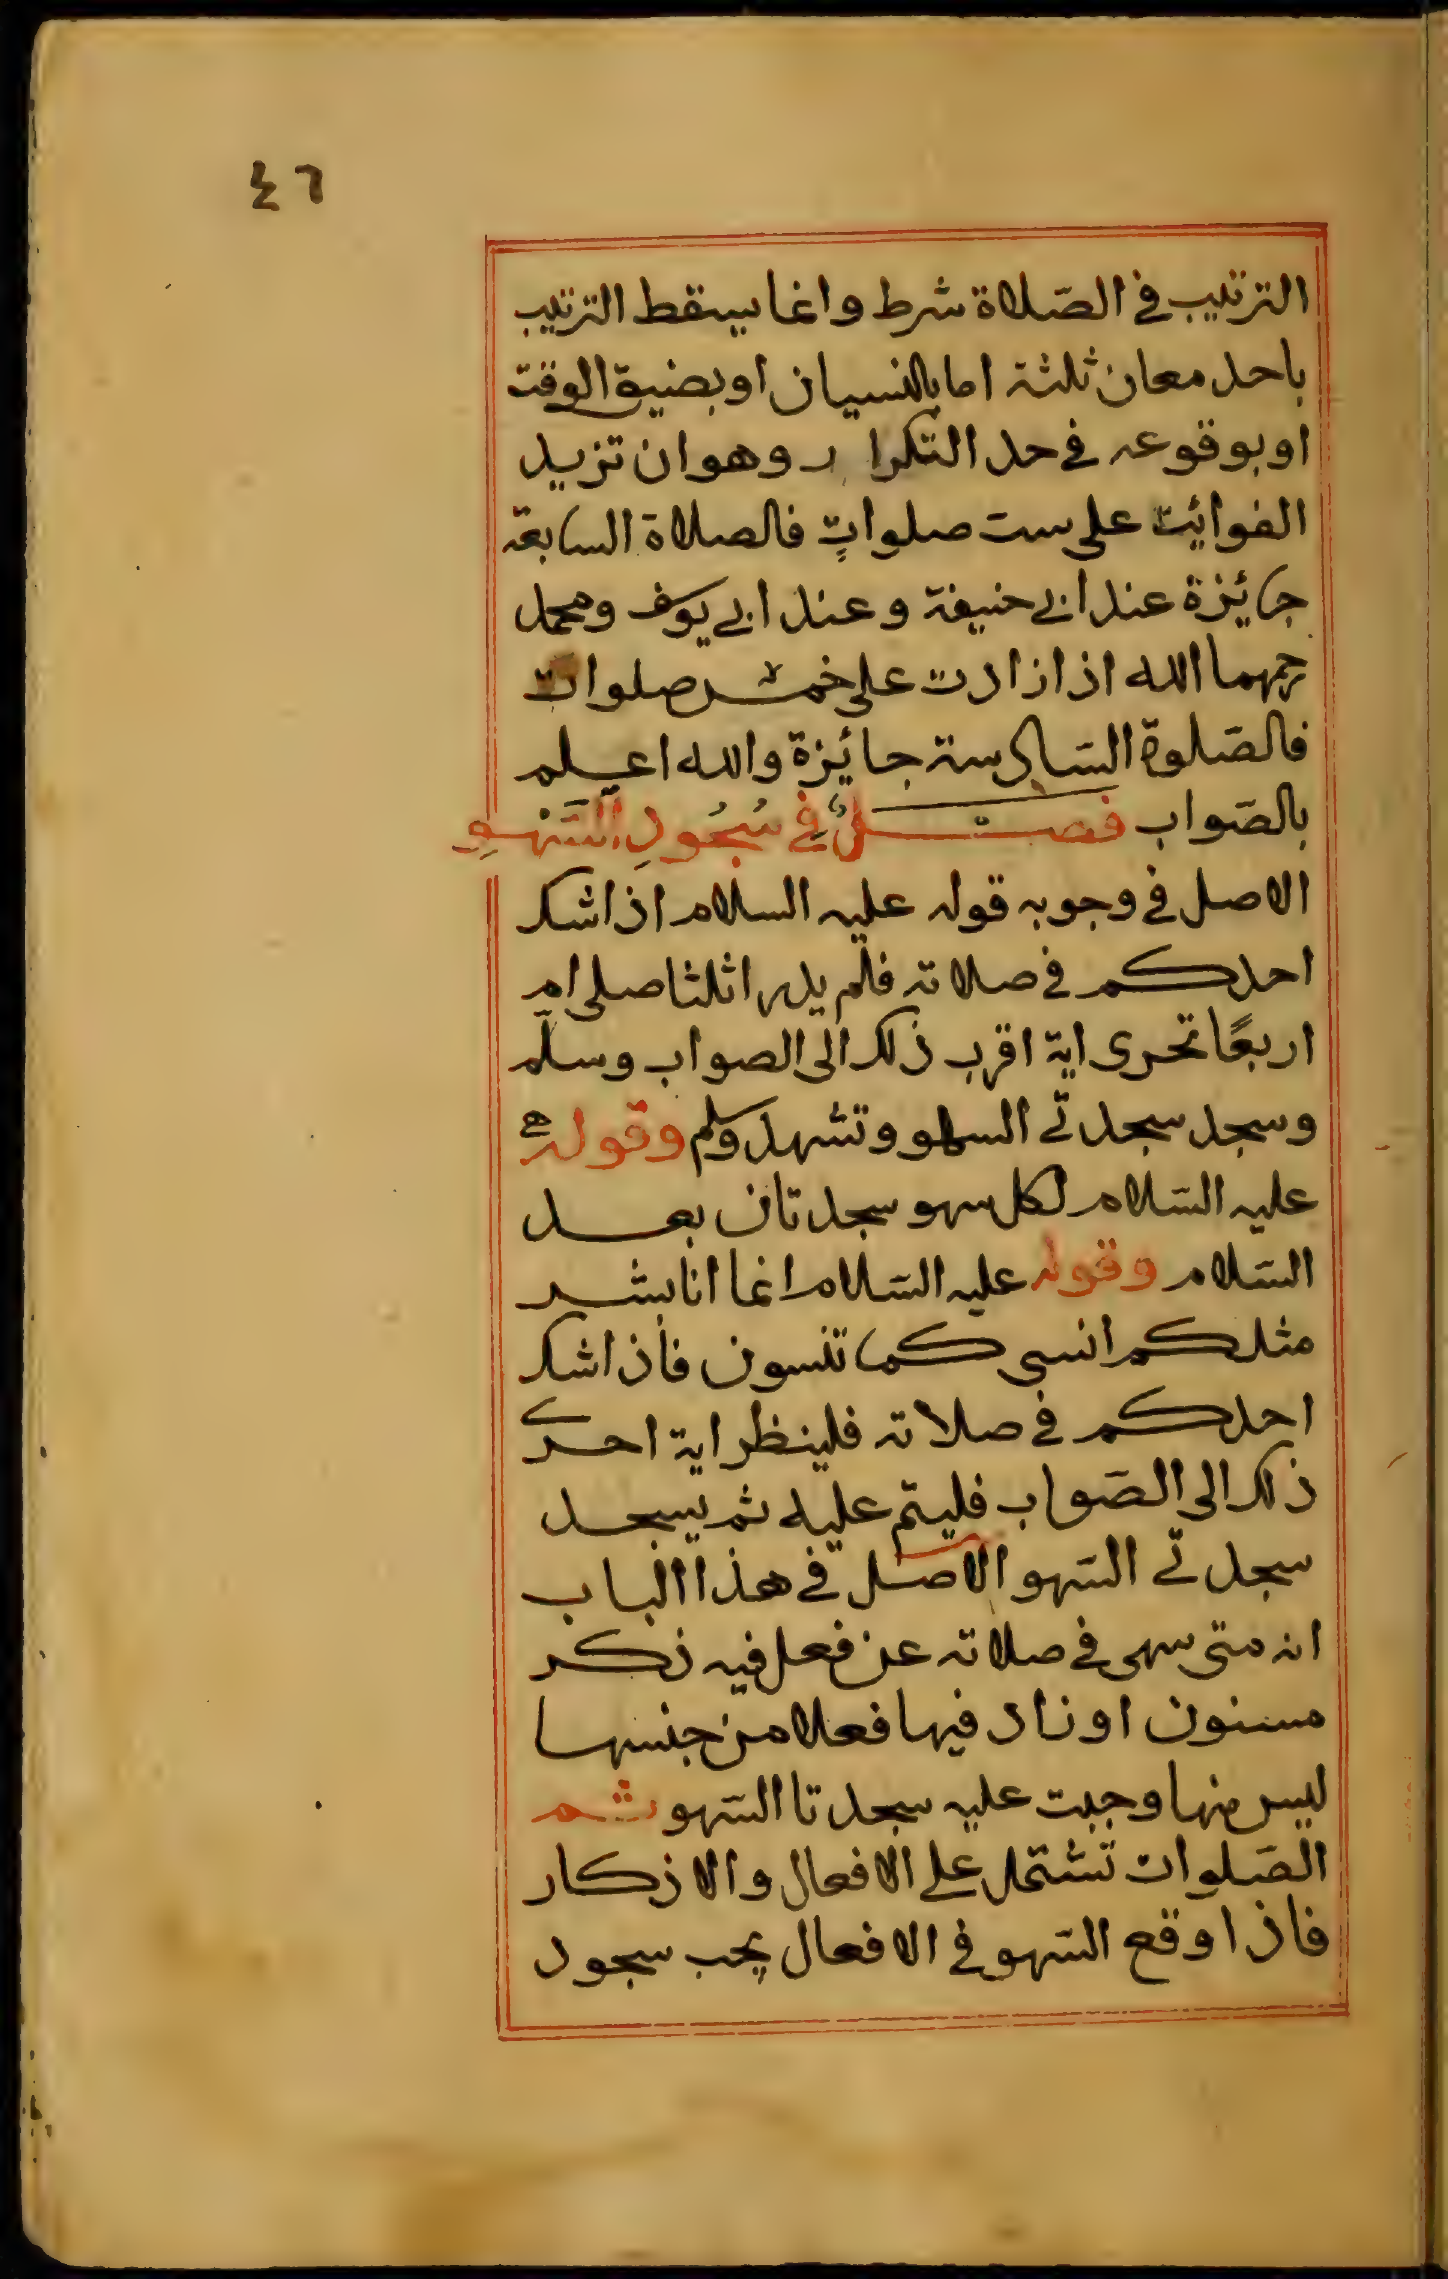 ٤٦
الترتيب في الصّلاة شرط وانما يسقط الترتيب
باحد معان ثلثة اما بالنسيان او بضيق الوقت
او بوقوعه في حد التكرار وهو ان تزيد
الفوائيت على ست صلوات فالصلاة السابعة
جائزة عند ابي حنيفة وعند ابي يوسف ومحمد
رحمهما الله اذا زادت على خمس صلوات
فالصّلوة السّادسة جائزة والله اعلم
بالصّواب فصلٌ في سُجُودِ السَّهْوِ
الاصل في وجوبه قوله عليه السلام اذا شك
احدكم في صلاته فلم يدر اثلثا صلى ام
اربعًا تحرى اية اقرب ذلك الى الصواب وسلّم
وسجد سجدتي السهو وتشهد وسلم وقوله
عليه السّلام لكل سهو سجدتان بعد
السّلام وقوله عليه السّلام انما انا بشر
مثلكم انسى كما تنسون فاذا شك
احدكم في صلاته فلينظر اية احرى
ذلك الى الصّواب فليتم عليه ثم يسجد
سجدتي السّهو الاصل في هذا الباب
انه متى سهى في صلاته عن فعل فيه ذكر
مسنون او زاد فيها فعلا من جنسها
ليس منها وجبت عليه سجدتا السّهو ثم
الصّلوات تشتمل على الافعال والاذكار
فاذا وقع السّهو في الافعال يجب سجود